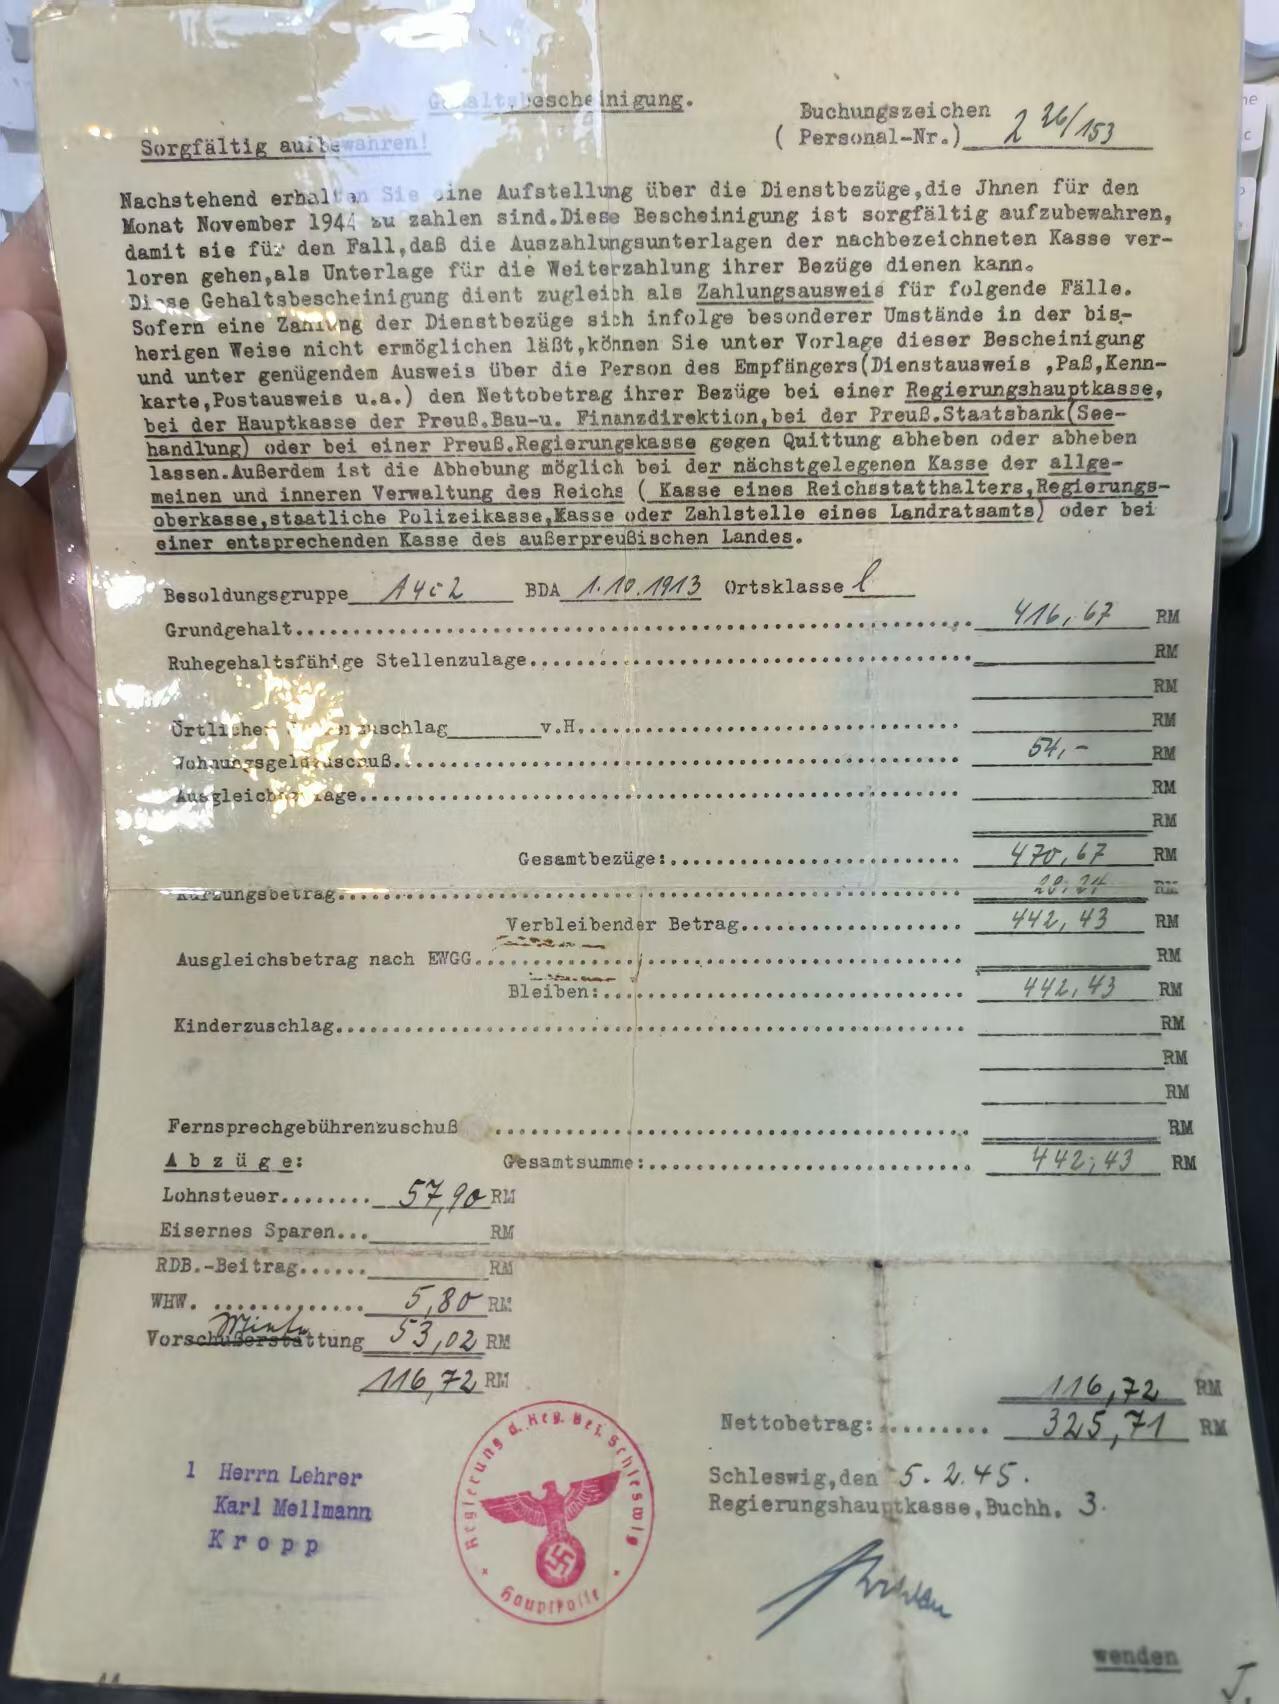 Gehaltsbescheinigung.
Buchungszeichen
( Personal-Nr.) 2 26/153
Sorgfältig aufbewahren!
Nachstehend erhalten Sie eine Aufstellung über die Dienstbezüge,die Jhnen für den
Monat November 1944 zu zahlen sind.Diese Bescheinigung ist sorgfältig aufzubewahren,
damit sie für den Fall,daß die Auszahlungsunterlagen der nachbezeichneten Kasse ver-
loren gehen,als Unterlage für die Weiterzahlung ihrer Bezüge dienen kann.
Diese Gehaltsbescheinigung dient zugleich als Zahlungsausweis für folgende Fälle.
Sofern eine Zahlung der Dienstbezüge sich infolge besonderer Umstände in der bis-
herigen Weise nicht ermöglichen läßt,können Sie unter Vorlage dieser Bescheinigung
und unter genügendem Ausweis über die Person des Empfängers(Dienstausweis ,Paß,Kenn-
karte,Postausweis u.a.) den Nettobetrag ihrer Bezüge bei einer Regierungshauptkasse,
bei der Hauptkasse der Preuß.Bau-u. Finanzdirektion,bei der Preuß.Staatsbank(See-
handlung) oder bei einer Preuß.Regierungskasse gegen Quittung abheben oder abheben
lassen.Außerdem ist die Abhebung möglich bei der nächstgelegenen Kasse der allge-
meinen und inneren Verwaltung des Reichs ( Kasse eines Reichsstatthalters,Regierungs-
oberkasse,staatliche Polizeikasse,Kasse oder Zahlstelle eines Landratsamts) oder bei
einer entsprechenden Kasse des außerpreußischen Landes.
Besoldungsgruppe A4c2 BDA 1.10.1913 Ortsklasse
Grundgehalt 416,67 RM
Ruhegehaltsfähige Stellenzulage RM
RM
Örtlicher Sonderzuschlag v.H. RM
Wohnungsgeldzuschuß 54,- RM
Ausgleichszulage RM
RM
Gesamtbezüge: 470,67 RM
Kürzungsbetrag 28,24 RM
Verbleibender Betrag 442,43 RM
Ausgleichsbetrag nach EWGG RM
Bleiben: 442,43 RM
Kinderzuschlag RM
RM
RM
Fernsprechgebührenzuschuß RM
Abzüge: Gesamtsumme: 442,43 RM
Lohnsteuer 57,90 RM
Eisernes Sparen RM
RDB.-Beitrag RM
WHW. 5,80 RM
Miete
Vorschußerstattung 53,02 RM
116,72 RM
116,72 RM
Nettobetrag: 325,71 RM
1 Herrn Lehrer
Karl Mellmann
Kropp
Regierung d. Reg. Bez. Schleswig
Hauptkasse
Schleswig,den 5.2.45.
Regierungshauptkasse,Buchh. 3.
wenden